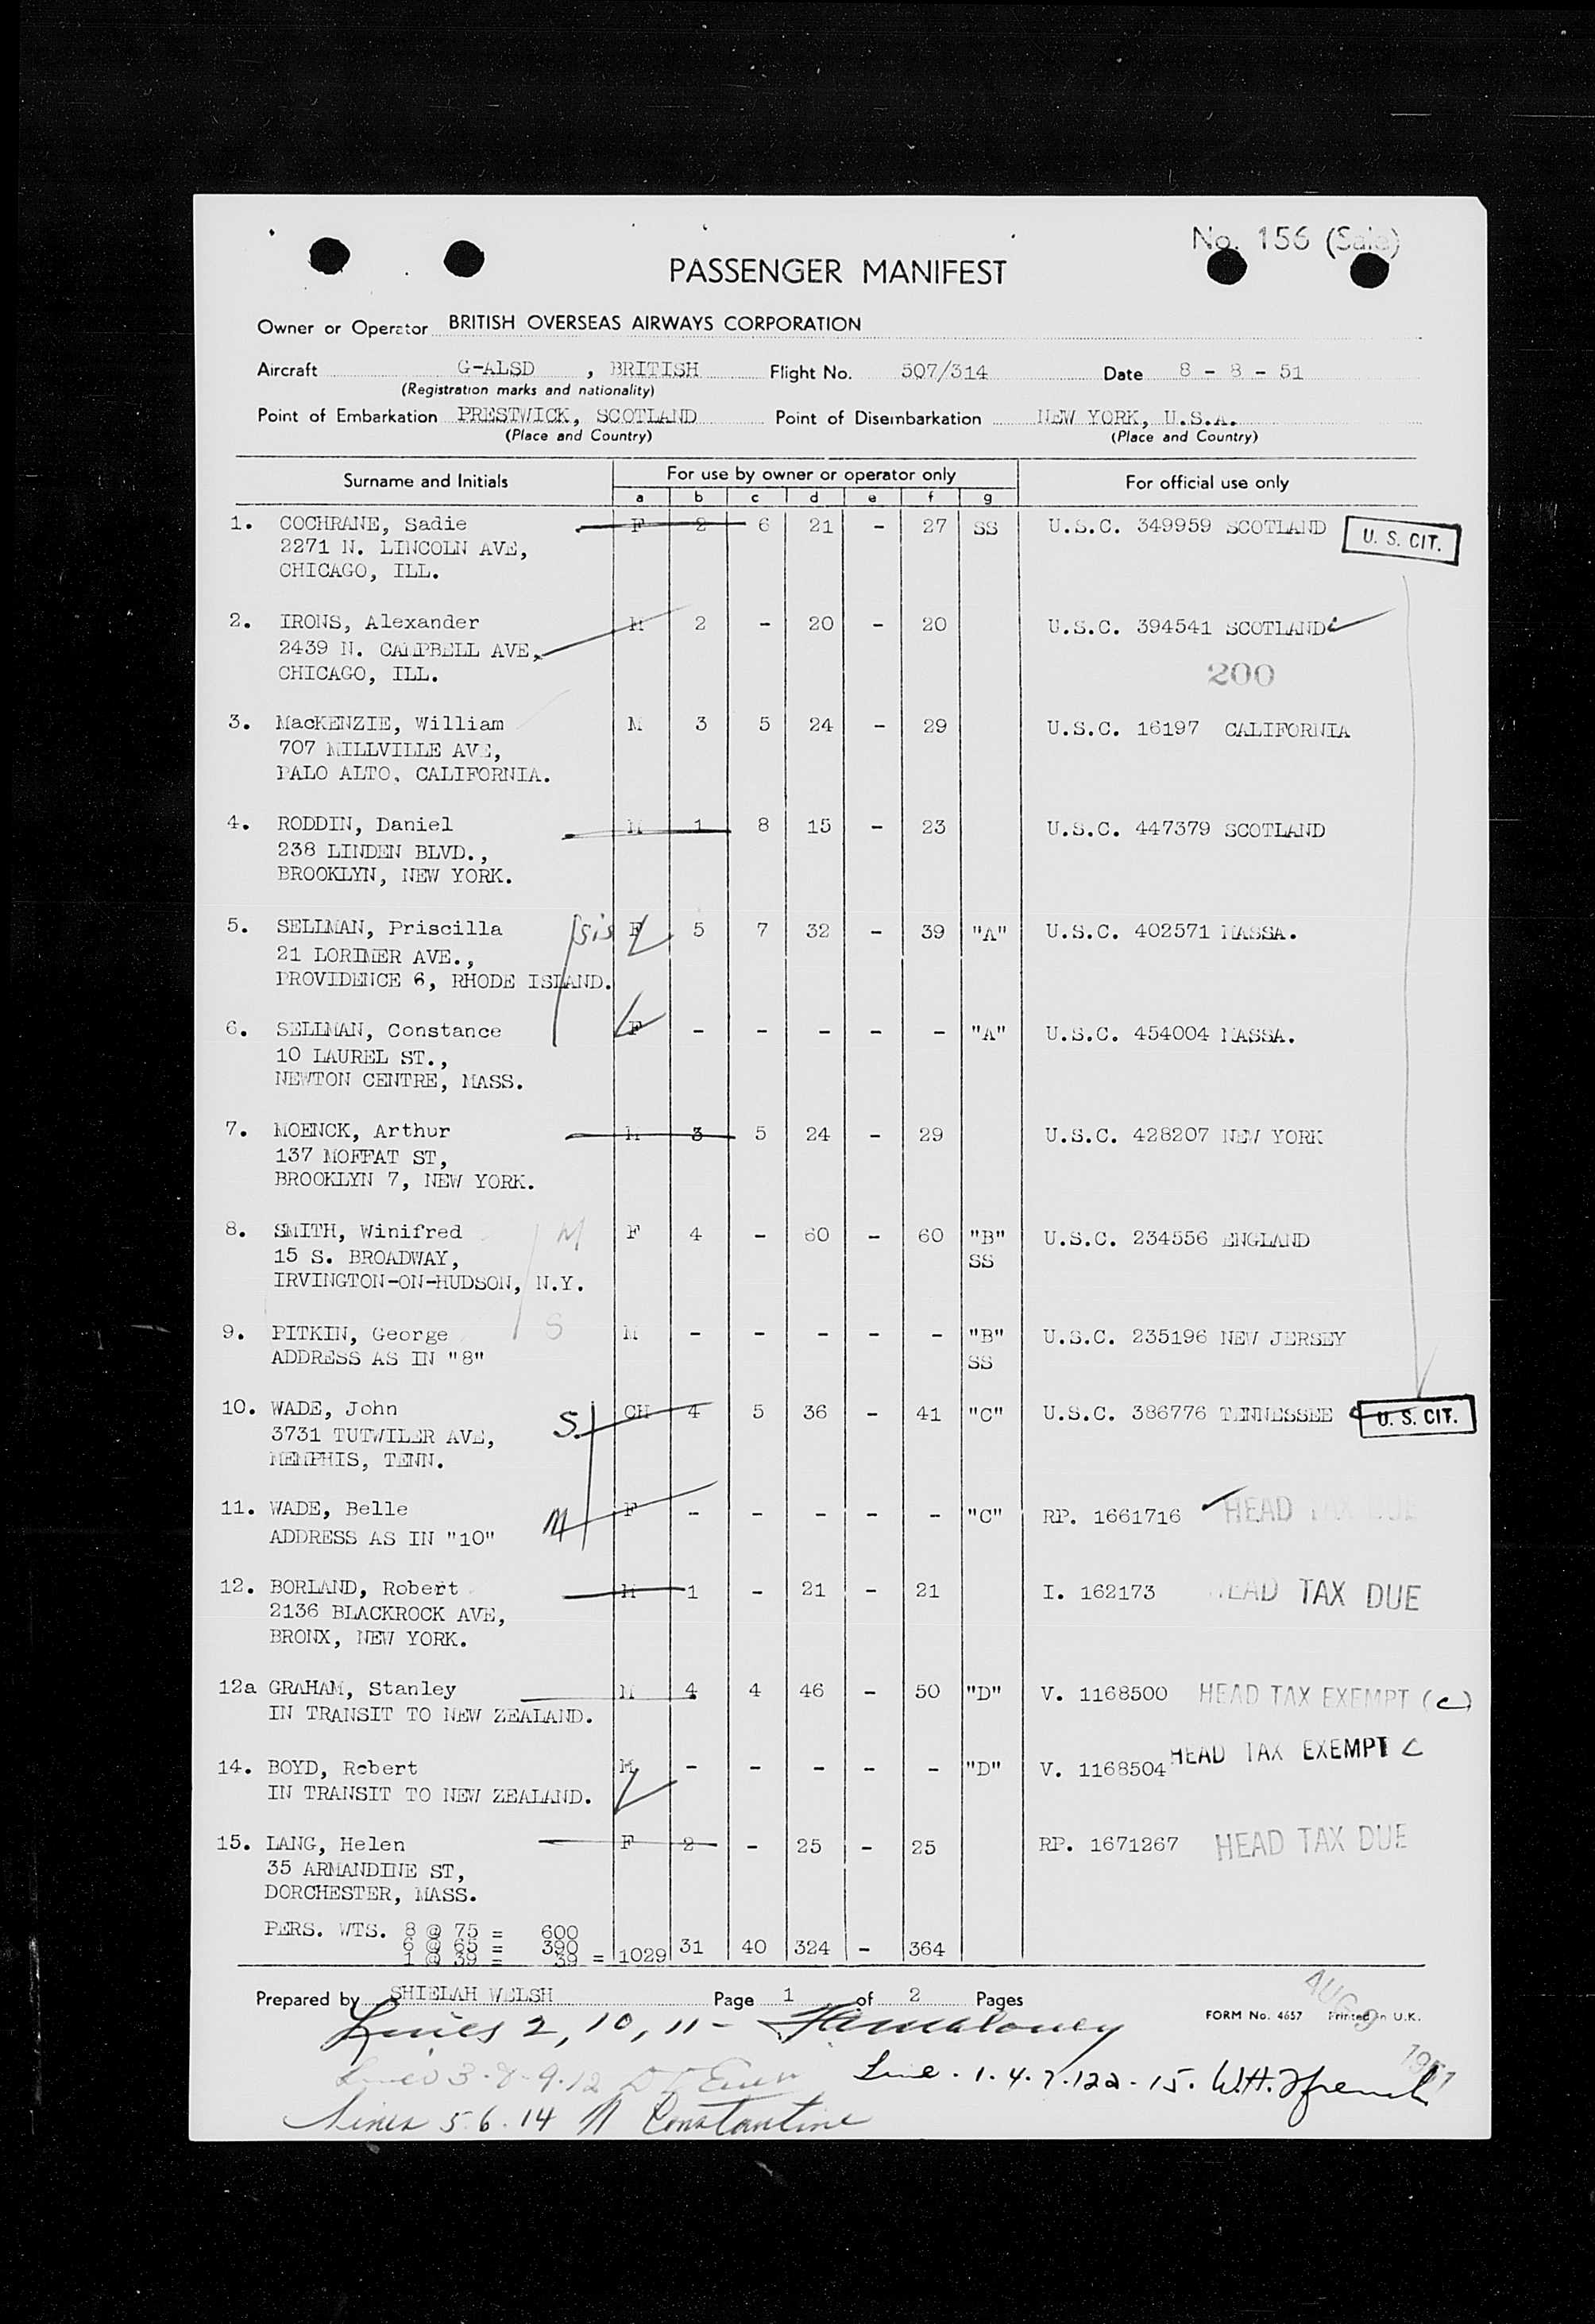 No. 156 (Sale)
PASSENGER MANIFEST
Owner or Operator BRITISH OVERSEAS AIRWAYS CORPORATION
Aircraft G-ALSD , BRITISH Flight No. 507/314 Date 8 - 8 - 51
(Registration marks and nationality)
Point of Embarkation PRESTWICK, SCOTLAND Point of Disembarkation NEW YORK, U.S.A.
(Place and Country) (Place and Country)
Surname and Initials For use by owner or operator only For official use only
a b c d e f g
1. COCHRANE, Sadie F 2 6 21 - 27 SS U.S.C. 349959 SCOTLAND U. S. CIT.
2271 N. LINCOLN AVE,
CHICAGO, ILL.
2. IRONS, Alexander M 2 - 20 - 20 U.S.C. 394541 SCOTLAND
2439 N. CAMPBELL AVE,
CHICAGO, ILL. 200
3. MacKENZIE, William M 3 5 24 - 29 U.S.C. 16197 CALIFORNIA
707 MILLVILLE AVE,
PALO ALTO, CALIFORNIA.
4. RODDIN, Daniel M 1 8 15 - 23 U.S.C. 447379 SCOTLAND
238 LINDEN BLVD.,
BROOKLYN, NEW YORK.
5. SELLMAN, Priscilla sis F 5 7 32 - 39 "A" U.S.C. 402571 MASSA.
21 LORIMER AVE.,
PROVIDENCE 6, RHODE ISLAND.
6. SELLMAN, Constance F - - - - - "A" U.S.C. 454004 MASSA.
10 LAUREL ST.,
NEWTON CENTRE, MASS.
7. MOENCK, Arthur M 3 5 24 - 29 U.S.C. 428207 NEW YORK
137 MOFFAT ST,
BROOKLYN 7, NEW YORK.
8. SMITH, Winifred M F 4 - 60 - 60 "B" U.S.C. 234556 ENGLAND
15 S. BROADWAY, SS
IRVINGTON-ON-HUDSON, N.Y.
9. PITKIN, George S M - - - - - "B" U.S.C. 235196 NEW JERSEY
ADDRESS AS IN "8" SS
10. WADE, John S. CH 4 5 36 - 41 "C" U.S.C. 386776 TENNESSEE U. S. CIT.
3731 TUTWILER AVE,
MEMPHIS, TENN.
11. WADE, Belle M F - - - - - "C" RP. 1661716 HEAD TAX DUE
ADDRESS AS IN "10"
12. BORLAND, Robert M 1 - 21 - 21 I. 162173 HEAD TAX DUE
2136 BLACKROCK AVE,
BRONX, NEW YORK.
12a GRAHAM, Stanley M 4 4 46 - 50 "D" V. 1168500 HEAD TAX EXEMPT (c)
IN TRANSIT TO NEW ZEALAND.
14. BOYD, Robert M - - - - - "D" V. 1168504 HEAD TAX EXEMPT C
IN TRANSIT TO NEW ZEALAND.
15. LANG, Helen F 2 - 25 - 25 RP. 1671267 HEAD TAX DUE
35 ARMANDINE ST,
DORCHESTER, MASS.
PERS. WTS. 8 @ 75 = 600
6 @ 65 = 390
1 @ 39 = 39 = 1029 31 40 324 - 364
Prepared by SHIELAH WELSH Page 1 of 2 Pages
FORM No. 4657 Printed in U.K.
AUG 9 1951
Lines 2, 10, 11 - Maloney
Lines 3-8-9-12
Line . 1. 4. 7. 12a - 15. W.H. French
Lines 5.6.14 Constantine